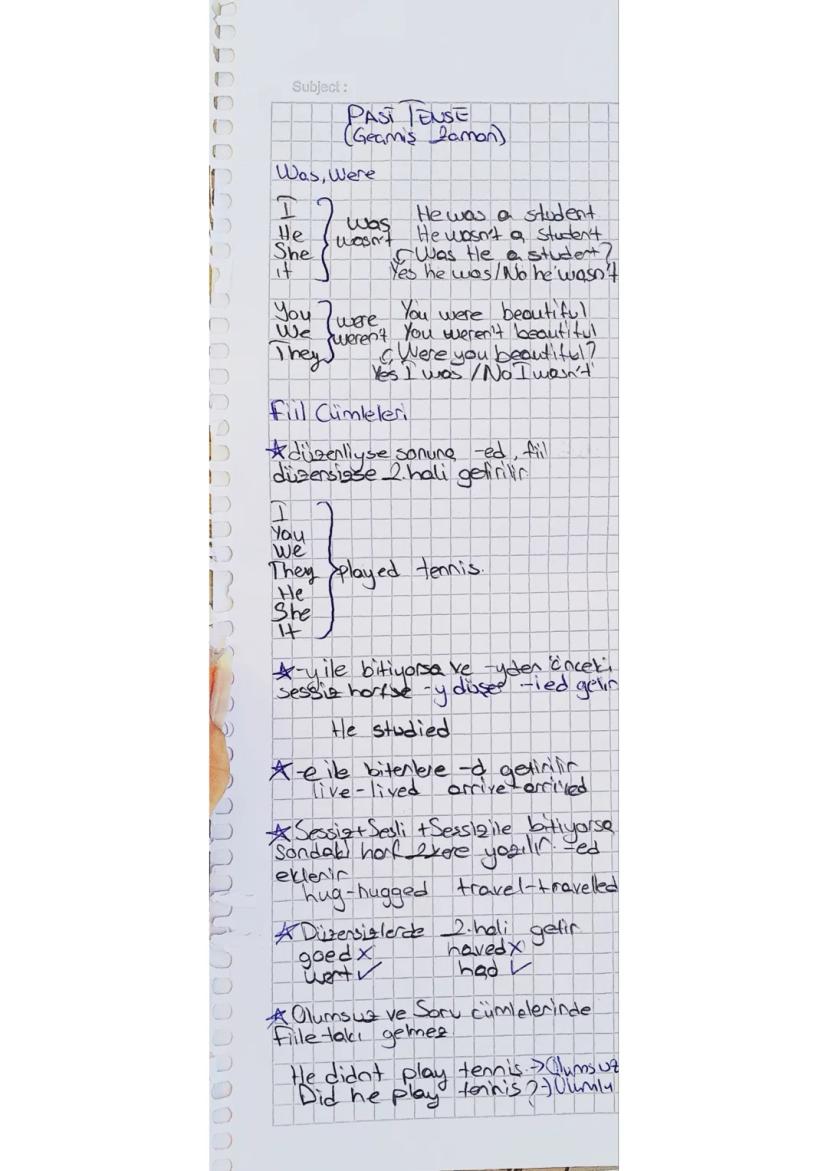 Subject:
PAST TENSE
(Geçmiş Zaman)
Was, Were
I
He
She
it
was
wasn't
He was a student
He wasn't a student
Was He a student?
Yes he was/No he wasn't
You
We
They
were
weren't
You were beautiful
You weren't beautiful
Were you beautiful?
Yes I was /No I wasn't
Fiil Cümleleri
★düzenliyse sonuna -ed, fiil
düzensizse 2.hali getirilir
I
You
We
They
He
She
It
played tennis.
★-y ile bitiyorsa ve -yden önceki
sessiz harfse -y düşer -ied gelir
He studied
★-e ile bitenlere -d getirilir
live-lived arrive-arrived
★Sessiz+Sesli+Sessiz ile bitiyorsa
Sondaki harf 2 kere yazılır. -ed
eklenir
hug-hugged travel-travelled
★Düzensizlerde 2.hali gelir
goed x haved x
went ✓ had ✓
★Olumsuz ve Soru cümlelerinde
Fiile takı gelmez
He didnt play tennis.→Olumsuz
Did he play tennis?→Olumlu